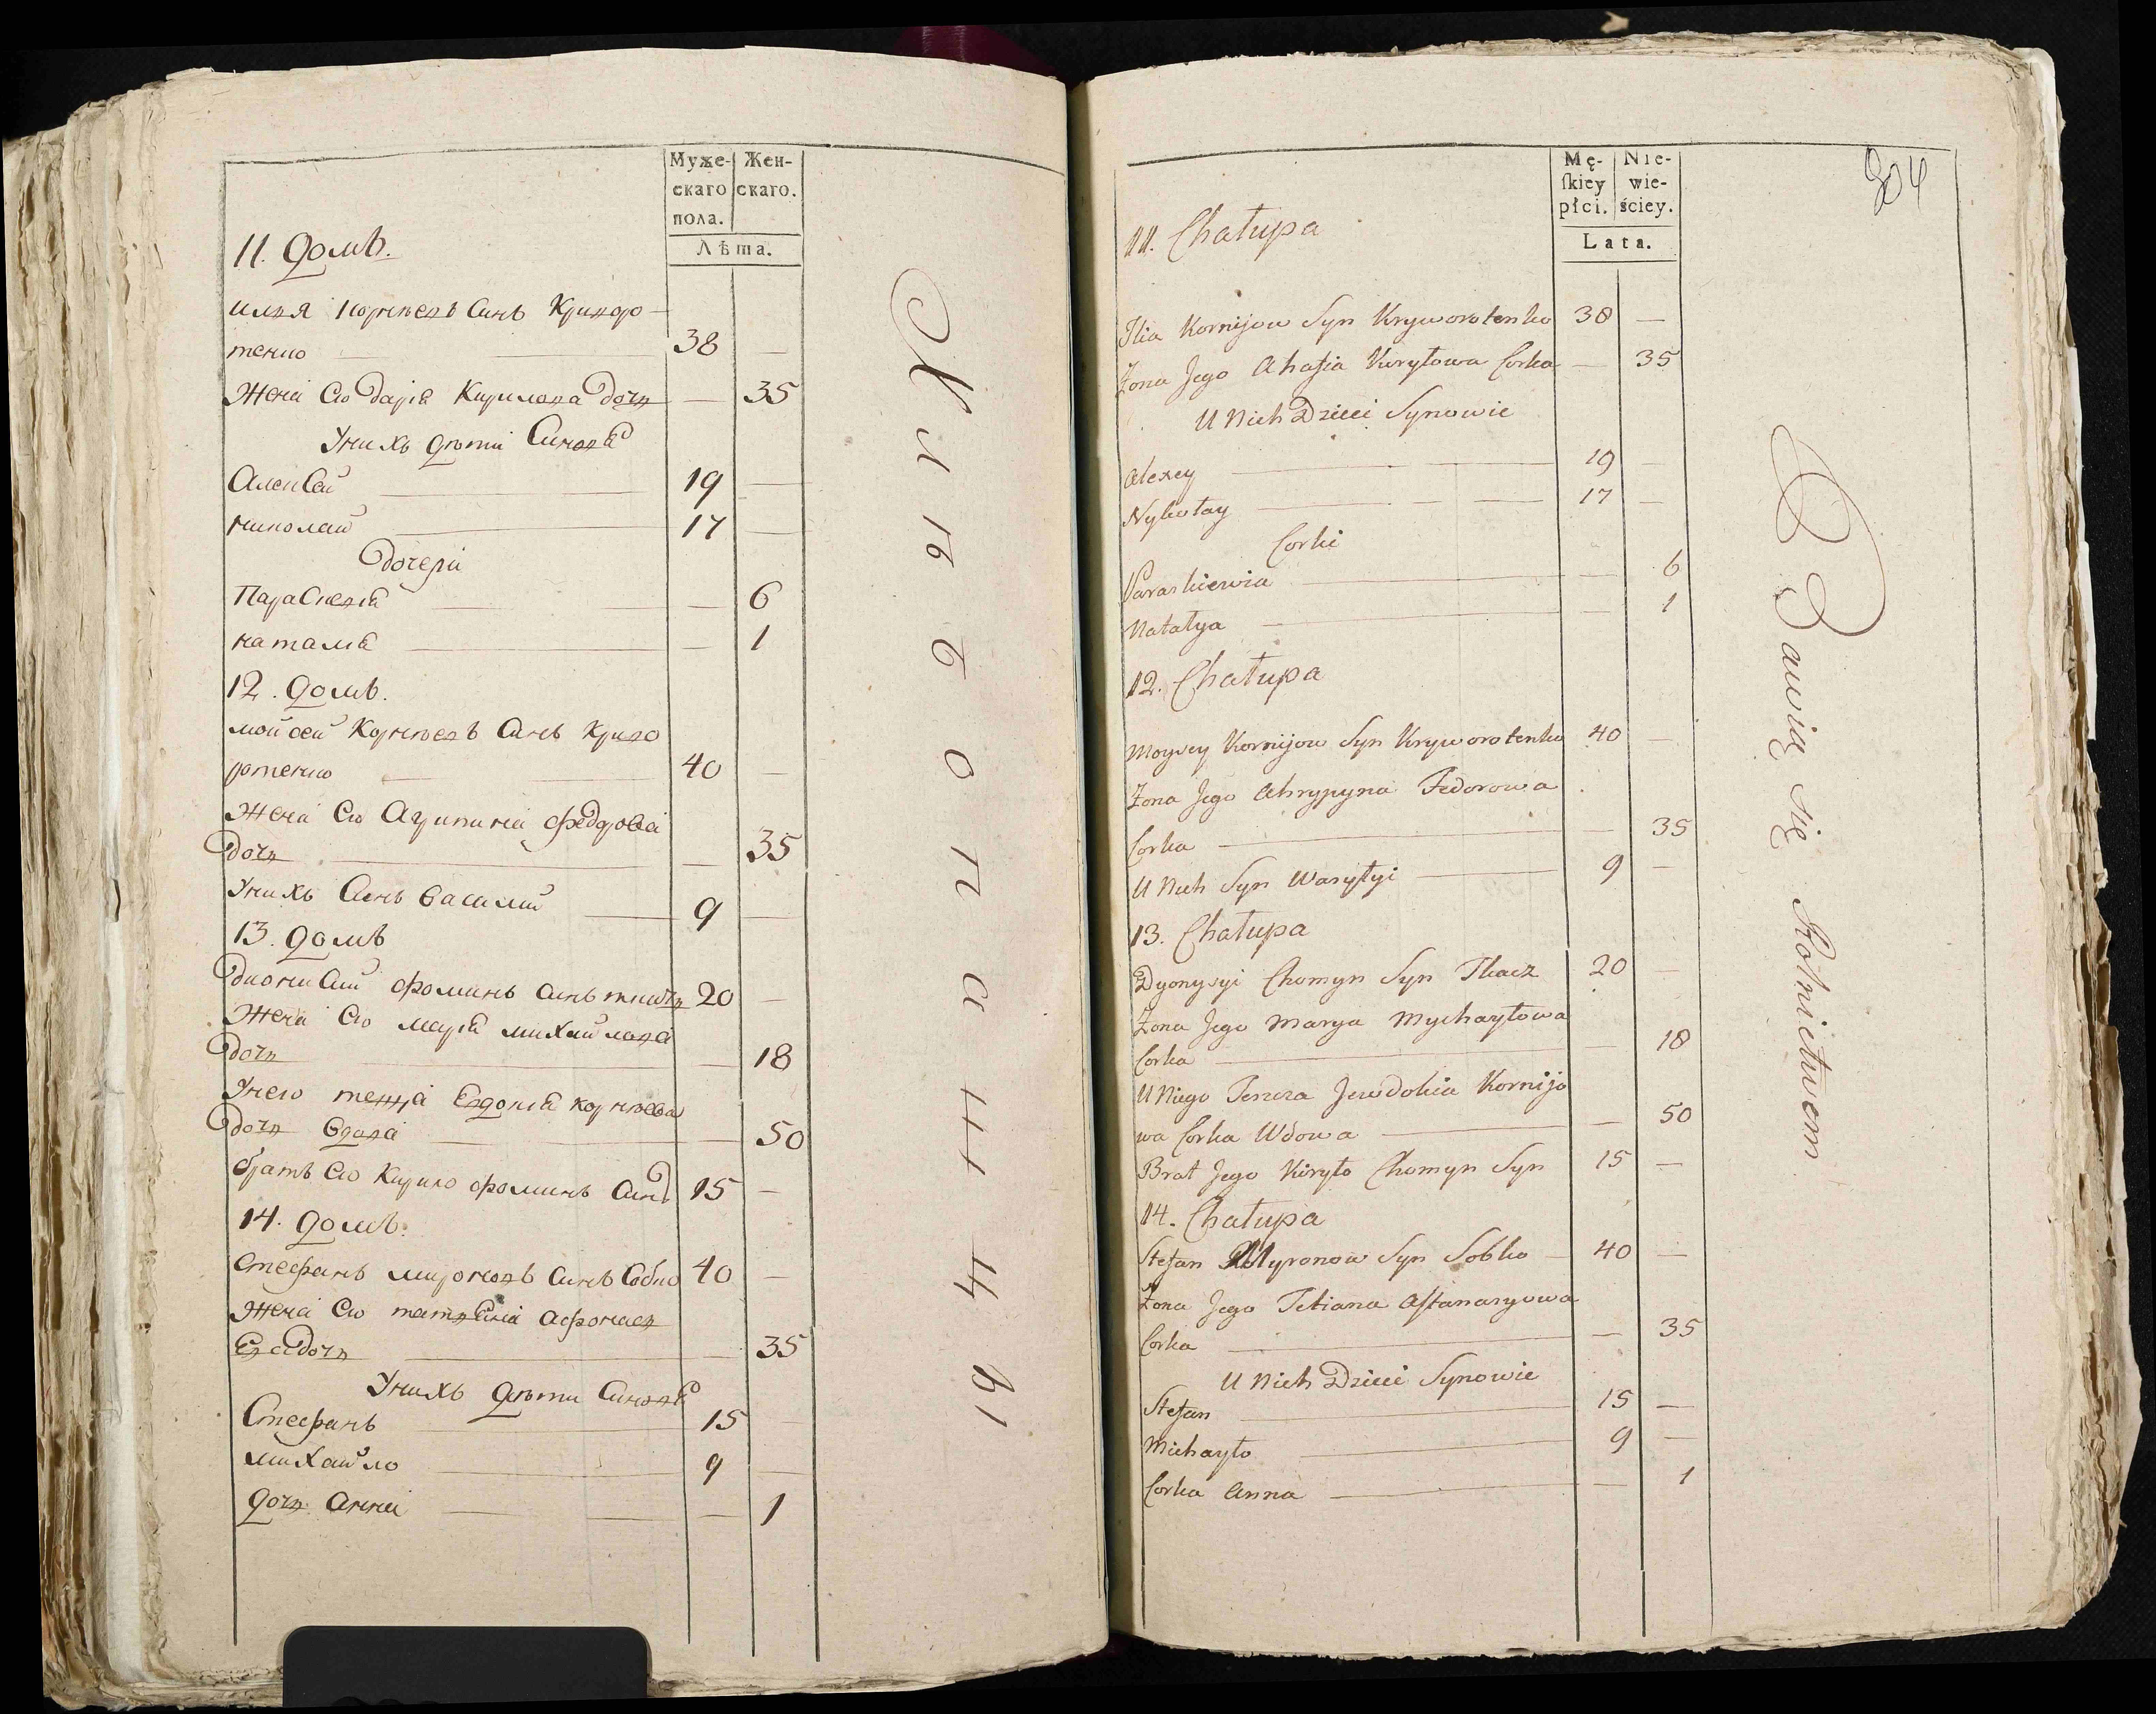 Муже-
скаго
пола.
Жен-
скаго.
Лѣта.
11. Домъ.
Илья Корнѣевъ Синъ Криворо-
тенко 38 —
Жена Его Дария Кирилова Дочь — 35
У нихъ Дѣти Синовя
Алексей 19 —
николай 17 —
Дочери
Параскевия — 6
наталия — 1
12. Домъ.
мойсей Корнѣевъ Синъ Криво
ротенко 40 —
Жена Его Агрипина федорова
Дочь — 35
У нихъ Синъ Василий 9 —
13. Домъ
Дионисий фоминъ Синъ ткачь 20 —
Жена Его мария михайлова
Дочь — 18
У него теща Евдокия корнѣева
Дочь Вдова — 50
братъ Его Кирило фоминъ Синъ 15 —
14. Домъ.
Стефанъ мироновъ Синъ Собко 40 —
Жена Его татьяна афонась
Ева Дочь — 35
У нихъ Дѣти Синовя
Стефанъ 15
михайло 9 —
Дочь Анна — 1
Mę-
skiey
płci.
Nie-
wie-
ściey.
Lata.
304
11. Chałupa
Ilia Kornijow Syn Kryworotenko 38 —
Żona Jego Ahafia Kuryłowa Corka — 35
U Nich Dzieci Synowie
Alexey 19 —
Nykołay 17 —
Corki
Paraskiewia — 6
Natałya — 1
12. Chałupa
Moysey Kornijow Syn Kryworotenko 40 —
Żona Jego Ahrypyna Fedorowa
Corka — 35
U Nich Syn Wasyłyi 9 —
13. Chałupa
Dyonysyi Chomyn Syn Tkacz 20 —
Żona Jego Marya Mychayłowa
Corka — 18
U Niego Jewdokia Kornijo
wa Corka Wdowa — 50
Brat Jego Kiryło Chomyn Syn 15 —
14. Chałupa
Stefan Myronow Syn Sobko — 40 —
Żona Jego Tetiana Afanasyowa
Corka — 35
U Nich Dzieci Synowie
Stefan 15 —
Michayło 9 —
Corka Anna — 1
Bawią się Rolnictwem